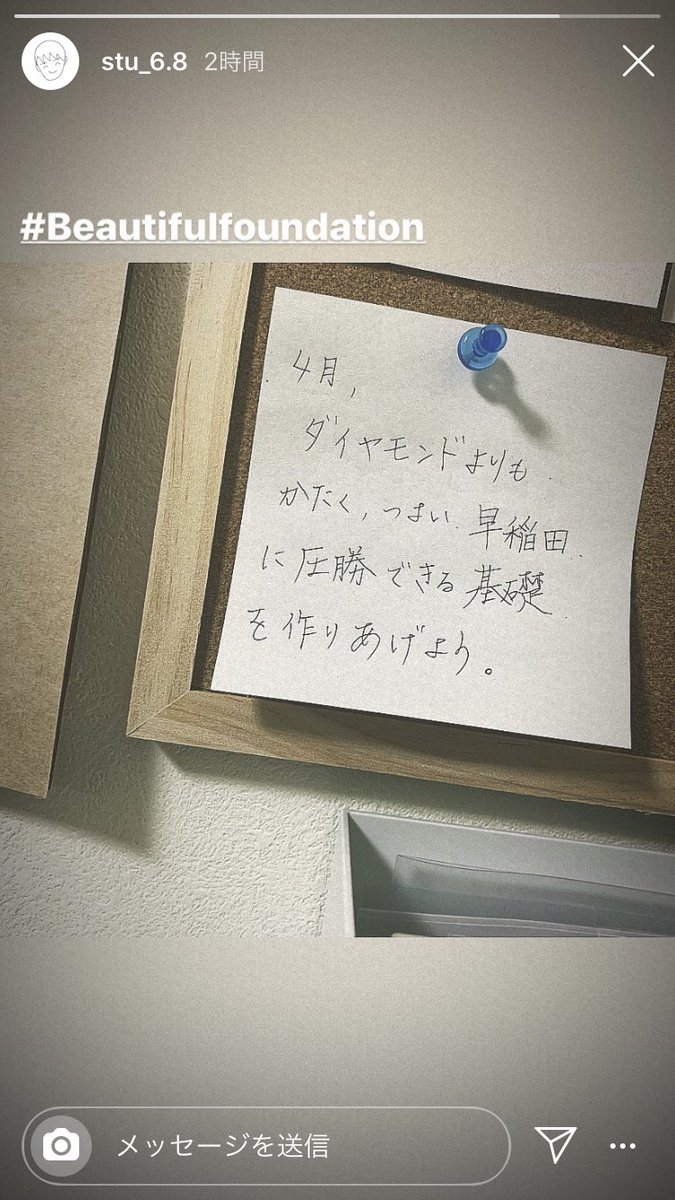 stu_6.8 2時間
#Beautifulfoundation
4月,
ダイヤモンドよりも
かたく,つよい早稲田
に圧勝できる基礎
を作りあげよう。
メッセージを送信